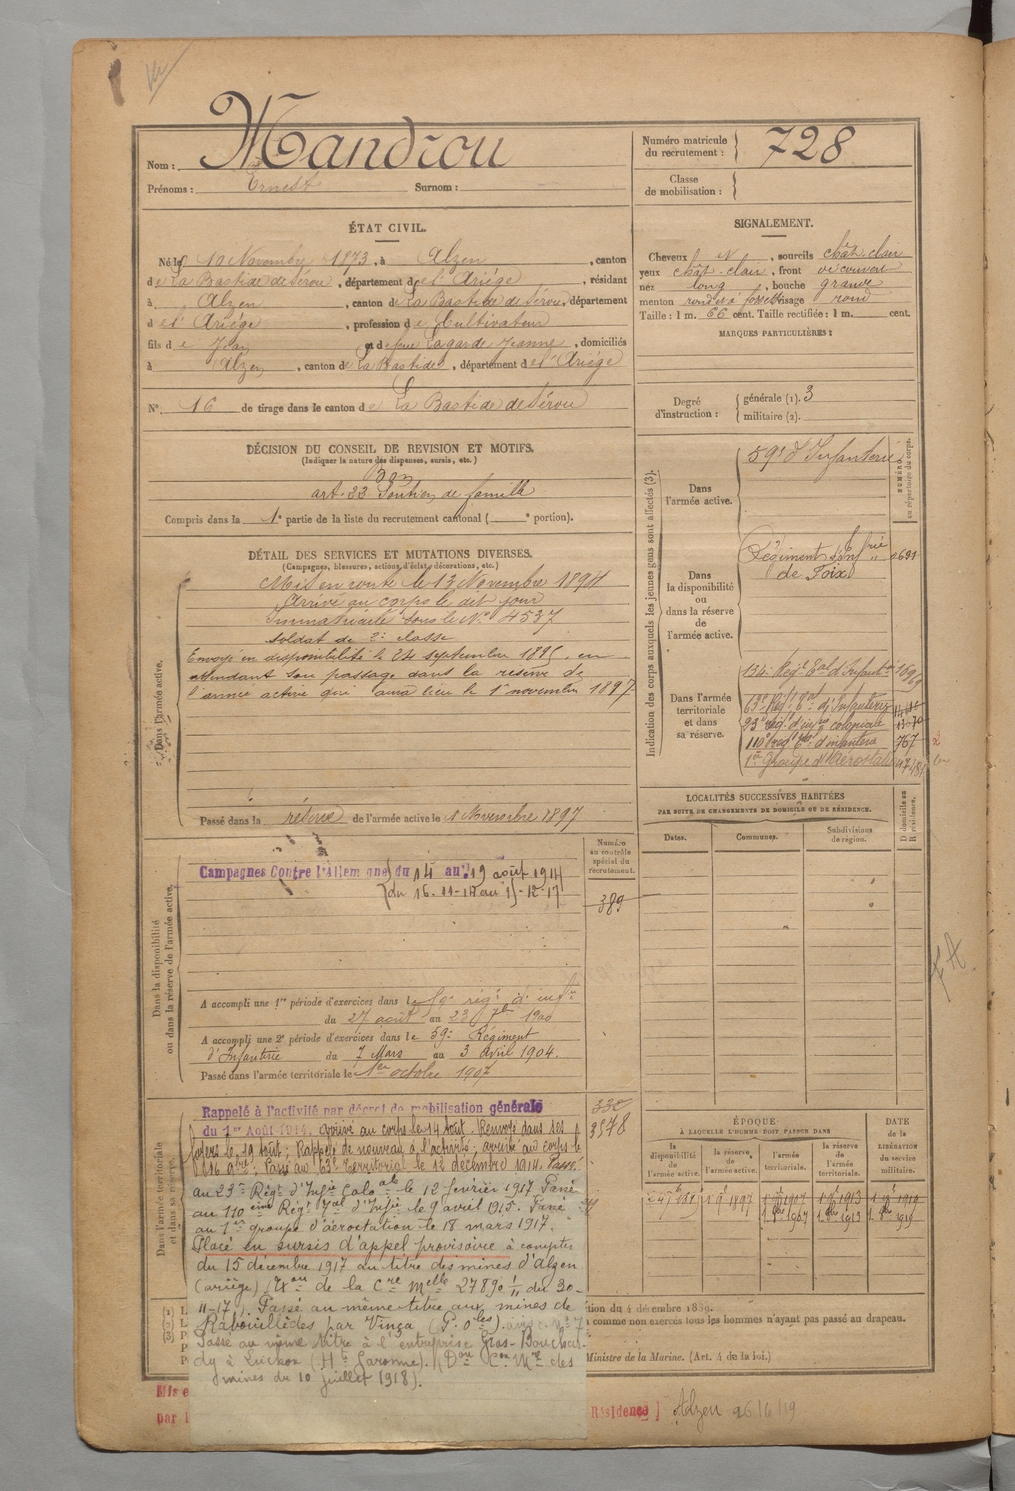 Mandrou
Nom :
Prénoms : Ernest Surnom :
Numéro matricule du recrutement : 728
Classe de mobilisation :
ÉTAT CIVIL.
Né le 10 Novembre 1873, à Alzen, canton
de La Bastide de Sérou, département de l'Ariège, résidant
à Alzen, canton de La Bastide de Sérou, département
d e l'Ariège, profession de Cultivateur
fils de Jean et de feue Lagarde Jeanne, domiciliés
à Alzen, canton de La Bastide, département de l'Ariège
N° 16 de tirage dans le canton de La Bastide de Sérou
SIGNALEMENT.
Cheveux N, sourcils chât. clair
yeux chât. clair, front découvert
nez long, bouche grande
menton rond à fossette visage rond
Taille : 1 m. 66 cent. Taille rectifiée : 1 m. cent.
MARQUES PARTICULIÈRES :
Degré d'instruction : générale (1). 3
militaire (2).
DÉCISION DU CONSEIL DE REVISION ET MOTIFS.
(Indiquer la nature des dispenses, sursis, etc.)
Bon
art. 22 Soutien de famille
Compris dans la 1e partie de la liste du recrutement cantonal ( e portion).
DÉTAIL DES SERVICES ET MUTATIONS DIVERSES.
(Campagnes, blessures, actions d'éclat, décorations, etc.)
Dans l'armée active.
Mis en route le 13 Novembre 1894
Arrivé au corps le dit jour
Immatriculé sous le N° 4537
soldat de 2e classe
Envoyé en disponibilité le 24 septembre 1895, en
attendant son passage dans la réserve de
l'armée active qui aura lieu le 1er novembre 1897
Passé dans la réserve de l'armée active le 1 Novembre 1897
Indication des corps auxquels les jeunes gens sont affectés (3).
NUMÉRO au répertoire du corps.
Dans l'armée active.
59e d'Infanterie
Dans la disponibilité ou dans la réserve de l'armée active.
Régiment d'Infrie
de Foix
Dans l'armée territoriale et dans sa réserve.
134e Regt Eal d'Infantie
63e Regt Eal d'Infanterie
23e régt d'infie coloniale
110e regt Eal d'infanterie 767
1er Groupe d'Aérostation
LOCALITÉS SUCCESSIVES HABITÉES
PAR SUITE DE CHANGEMENTS DE DOMICILE OU DE RÉSIDENCE.
Dates. Communes. Subdivisions de région. D domicile ou R résidence.
Dans la disponibilité ou dans la réserve de l'armée active.
Numéro au contrôle spécial du recrutement.
389
Campagnes Contre l'Allemagne du 14 au 19 août 1914
du 16-11-14 au 15-12-17
A accompli une 1re période d'exercices dans le 59e régt d'infie
du 27 août au 23 7bre 1900
A accompli une 2e période d'exercices dans le 59e Régiment
d'Infanterie du 7 Mars au 3 avril 1904.
Passé dans l'armée territoriale le 1er octobre 1907
Dans l'armée territoriale et dans sa réserve.
332
3578
Rappelé à l'activité par décret de mobilisation générale
du 1er Août 1914, arrivé au corps le 14 août. Renvoyé dans ses
foyers le 19 août; Rappelé de nouveau à l'activité; arrivé au corps le
16 9bre; Passé au 63e Territorial le 12 décembre 1914. Passé
au 23e Régt d'Infie Colo ale le 12 février 1917 Passé
au 110 eme Régt Tal d'Infie le 9 avril 1915. Passé
au 1er groupe d'aérostation le 18 mars 1917.
Placé en sursis d'appel provisoire à compter
du 15 décembre 1917 au titre des mines d'Alzen
(ariège) de la Cre Melle 27890 1/11 du 30-
11-17). Passé au même titre aux mines de
Rabouillèdes par Vinça (P. Oles).
Passé au même titre à l'entreprise Gras-Bouchar-
dy à Luchon (Hte Garonne).
mines du 10 juillet 1918).
ÉPOQUE
À LAQUELLE L'HOMME DOIT PASSER DANS
la disponibilité de l'armée active. la réserve de l'armée active. l'armée territoriale. la réserve de l'armée territoriale.
DATE de la LIBÉRATION du service militaire.
1 9e 1897 1 9e 1907 1 9e 1913 1 9e 1919
1. 8bre 1907 1. 8bre 1913 1. 8bre 1919
tion du 4 décembre 1889.
comme non exercés tous les hommes n'ayant pas passé au drapeau.
Ministre de la Marine. (Art. 4 de la loi.)
Mis e
par l
Résidence] Alzen 26/6/19
F A